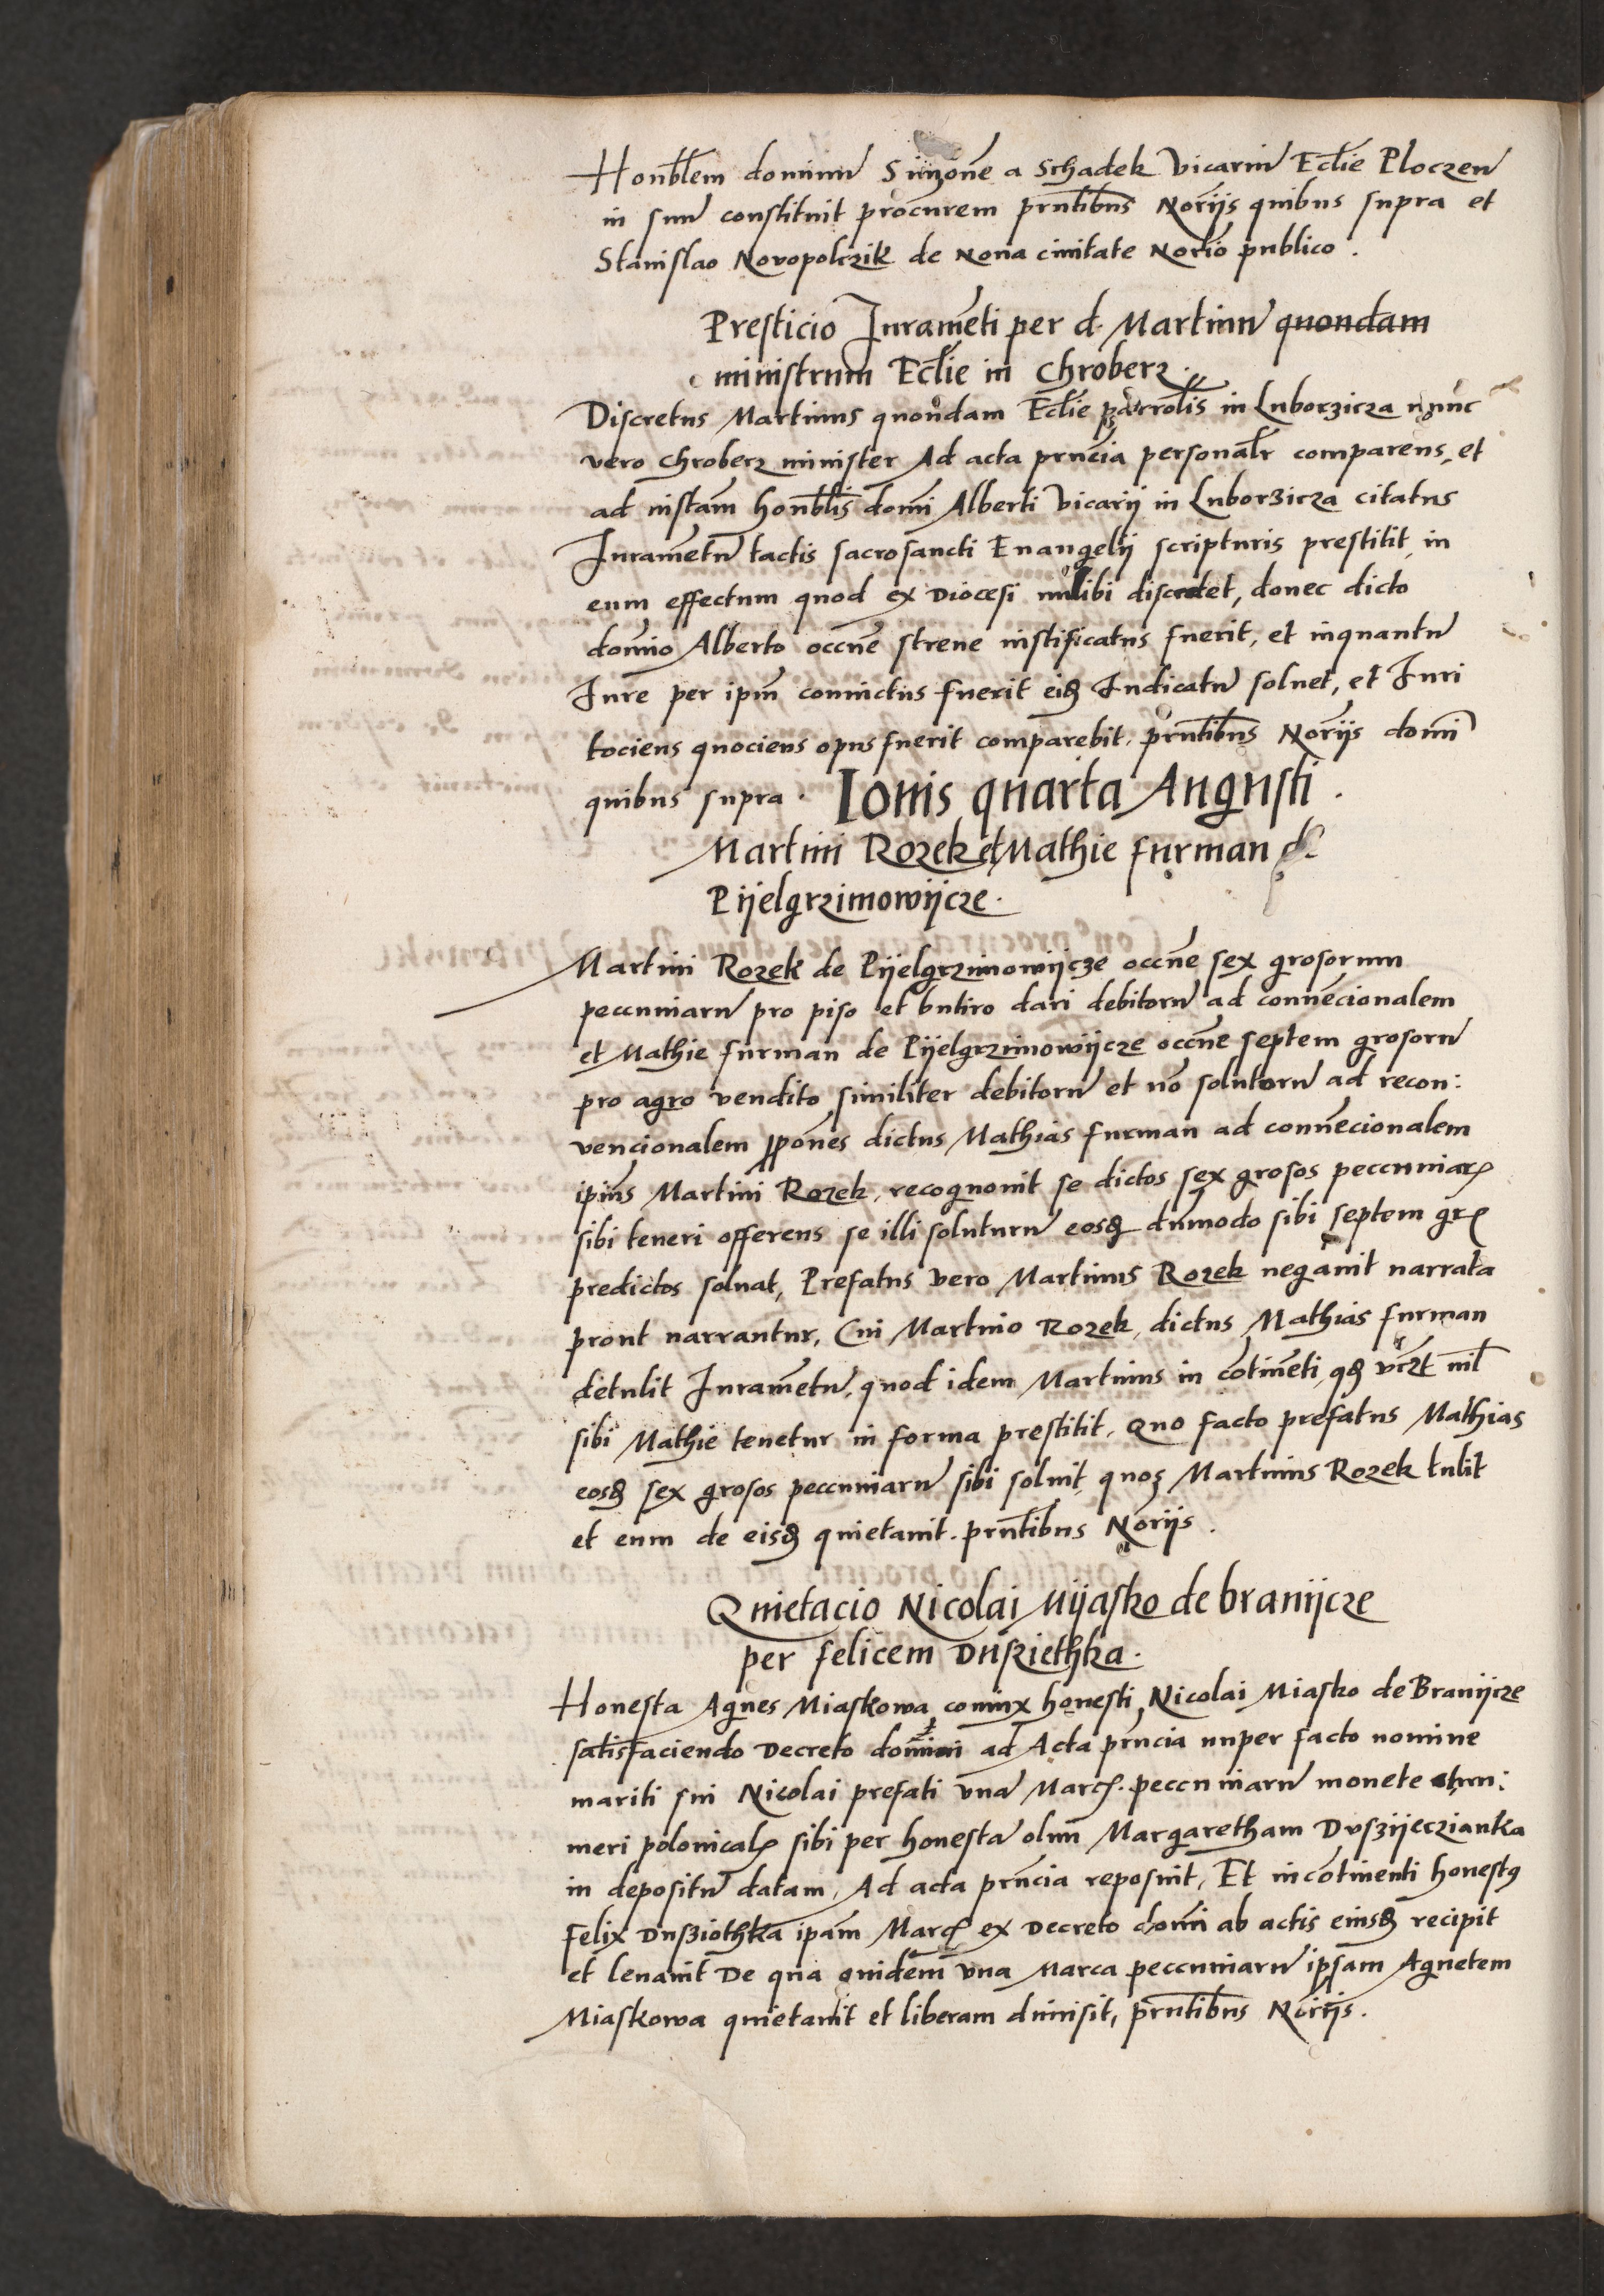 Honblem dominū Simonē a Schadek Vicariū Eclīe Ploczeń
in suū constituit procūrem prntibus Norijs quibus supra et
Stanislao Novopolczik de Noua ciuitate Norio publico.
Presticio Juramēti per d. Martinū quondam
ministrum Eclīe in Chroberz.
Discretus Martinus quondam Eclīe parrolis in Luborzicza nunc
vero Chroberz minister Ad acta prn̄cia personalr comparens, et
ad instam honblis domi Alberti Vicarij in Luborzicza citatus
Juramētū tactis sacrosancti Euangelij scripturis prestitit in
eum effectum quod ex Diocesi nullibi discedet, donec dicto
domio Alberto occne strene iustificatus fuerit, et inquantū
Jure per ipm conuictus fuerit eiꝫ Judicatū soluet, et Juri
tociens quociens opus fuerit comparebit. prntibus Norijs domi
quibus supra. Iouis quarta Augusti.
Martini Rozek et Mathie furman de
Pijelgrzimowijcze.
Martini Rozek de Pijelgrzimowijcze occne sex grosorum
peccuniarū pro piso et butiro dari debitorū ad conuēcionalem
et Mathie furman de Pijelgrzimowijcze occne septem grosorū
pro agro vendito similiter debitorū et nō solutorū ad recon:
vencionalem ꝓponēs dictus Mathias furman ad conuēcionalem
ipius Martini Rozek, recognouit se dictos sex grosos peccuniaꝝ
sibi teneri offerens se illi soluturū eosꝫ dūmodo sibi septem grꝭ
predictos soluat, Prefatus vero Martinus Rozek negauit narrata
prout narrantur, Cui Martino Rozek, dictus Mathias furman
detulit Juramētū, quod idem Martinus in cōtinēti, qꝫ vrꝫt nil
sibi Mathie tenetur in forma prestitit. Quo facto prefatus Mathias
eosꝫ sex grosos peccuniarū sibi soluit, quos Martinus Rozek tulit
et eum de eisꝫ quietauit. prntibus Norijs.
Quietacio Nicolai Mijasko de branijcze
per felicem Duskiethka.
Honesta Agnes Miaskowa coniux honesti Nicolai Miasko de Branijcze
satisfaciendo Decreto domini ad Acta prn̄cia nuper facto nomine
mariti sui Nicolai prefati vnā Marcꝭ. peccuniarū monete et nu:
meri polonicalꝭ sibi per honestā olim Margaretham Duszijeczianka
in depositū datam, Ad acta prn̄cia reposuit, Et incōtinenti honestꝰ
Felix Dusziothka ipam Marcꝭ ex Decreto domi ab actis eiusꝫ recipit
et leuauit De qua quidem vna Marca peccuniarū ipsam Agnetem
Miaskowa quietauit et liberam dimisit, prntibus Norijs.